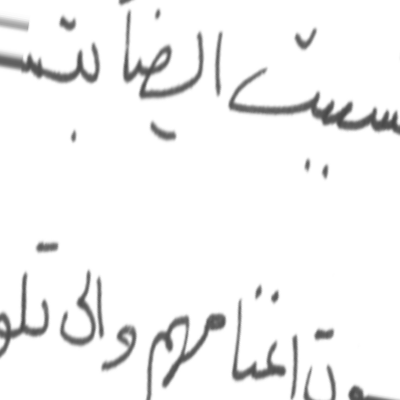 سببت ايضاً بتس
اغنامهم والى تلو